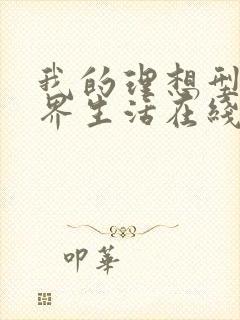 我的理想型
界生活在线
叩華